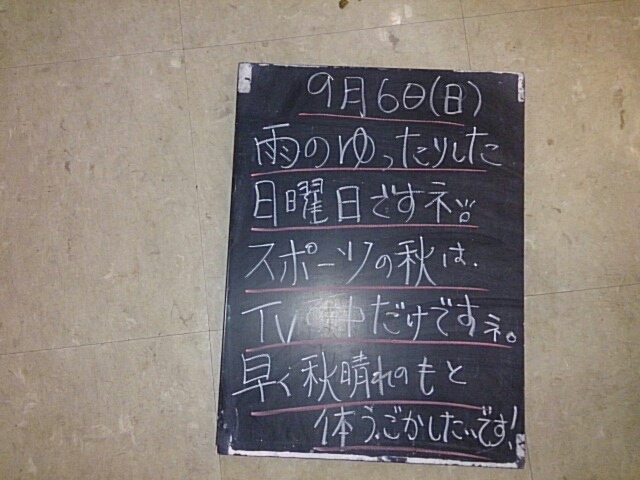 9月6日(日)
雨のゆったりした
日曜日ですネ。
スポーツの秋は、
TV 中だけですネ。
早く秋晴れのもと
体うごかしたいです!